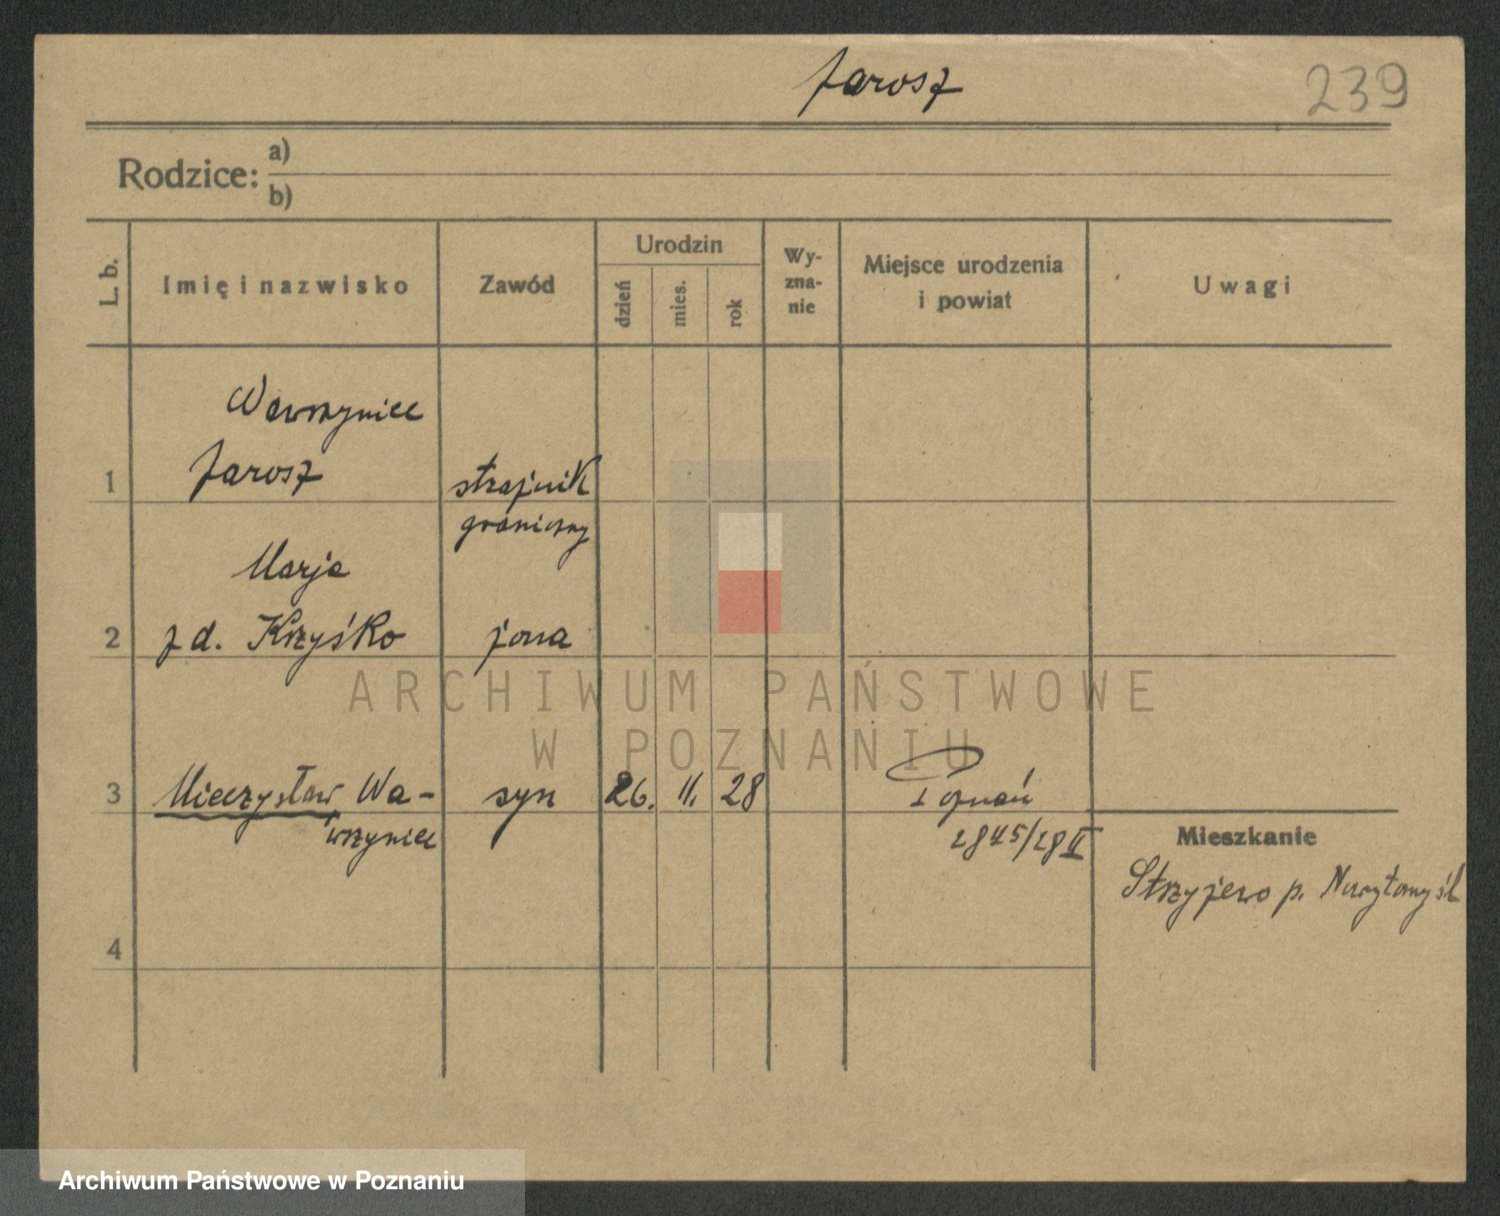 Jarosz
239
Rodzice: a)
b)
L. b.
Imię i nazwisko
Zawód
Urodzin
dzień
mies.
rok
Wy-
zna-
nie
Miejsce urodzenia
i powiat
Uwagi
Wawrzyniec
1 Jarosz strażnik
graniczny
Marja
2 z d. Krzyśko żona
ARCHIWUM PAŃSTWOWE
W POZNANIU
3 Mieczysław Wa- syn 26. 11. 28 Poznań
wrzyniec
2845/28 II
Mieszkanie
Strzyżewo p. Nowytomyśl
4
Archiwum Państwowe w Poznaniu